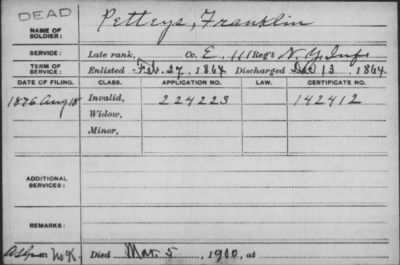 DEAD
NAME OF SOLDIER: Petteys, Franklin
SERVICE: Late rank, Co. E. 111 Reg't N.Y. Inf.
TERM OF SERVICE: Enlisted Feb. 27, 1864 Discharged Dec 13, 1864
DATE OF FILING. CLASS. APPLICATION NO. LAW. CERTIFICATE NO.
1876 Aug 18 Invalid, 224223 142412
Widow,
Minor,
ADDITIONAL SERVICES:
REMARKS:
Died Mar. 5, 1900, at